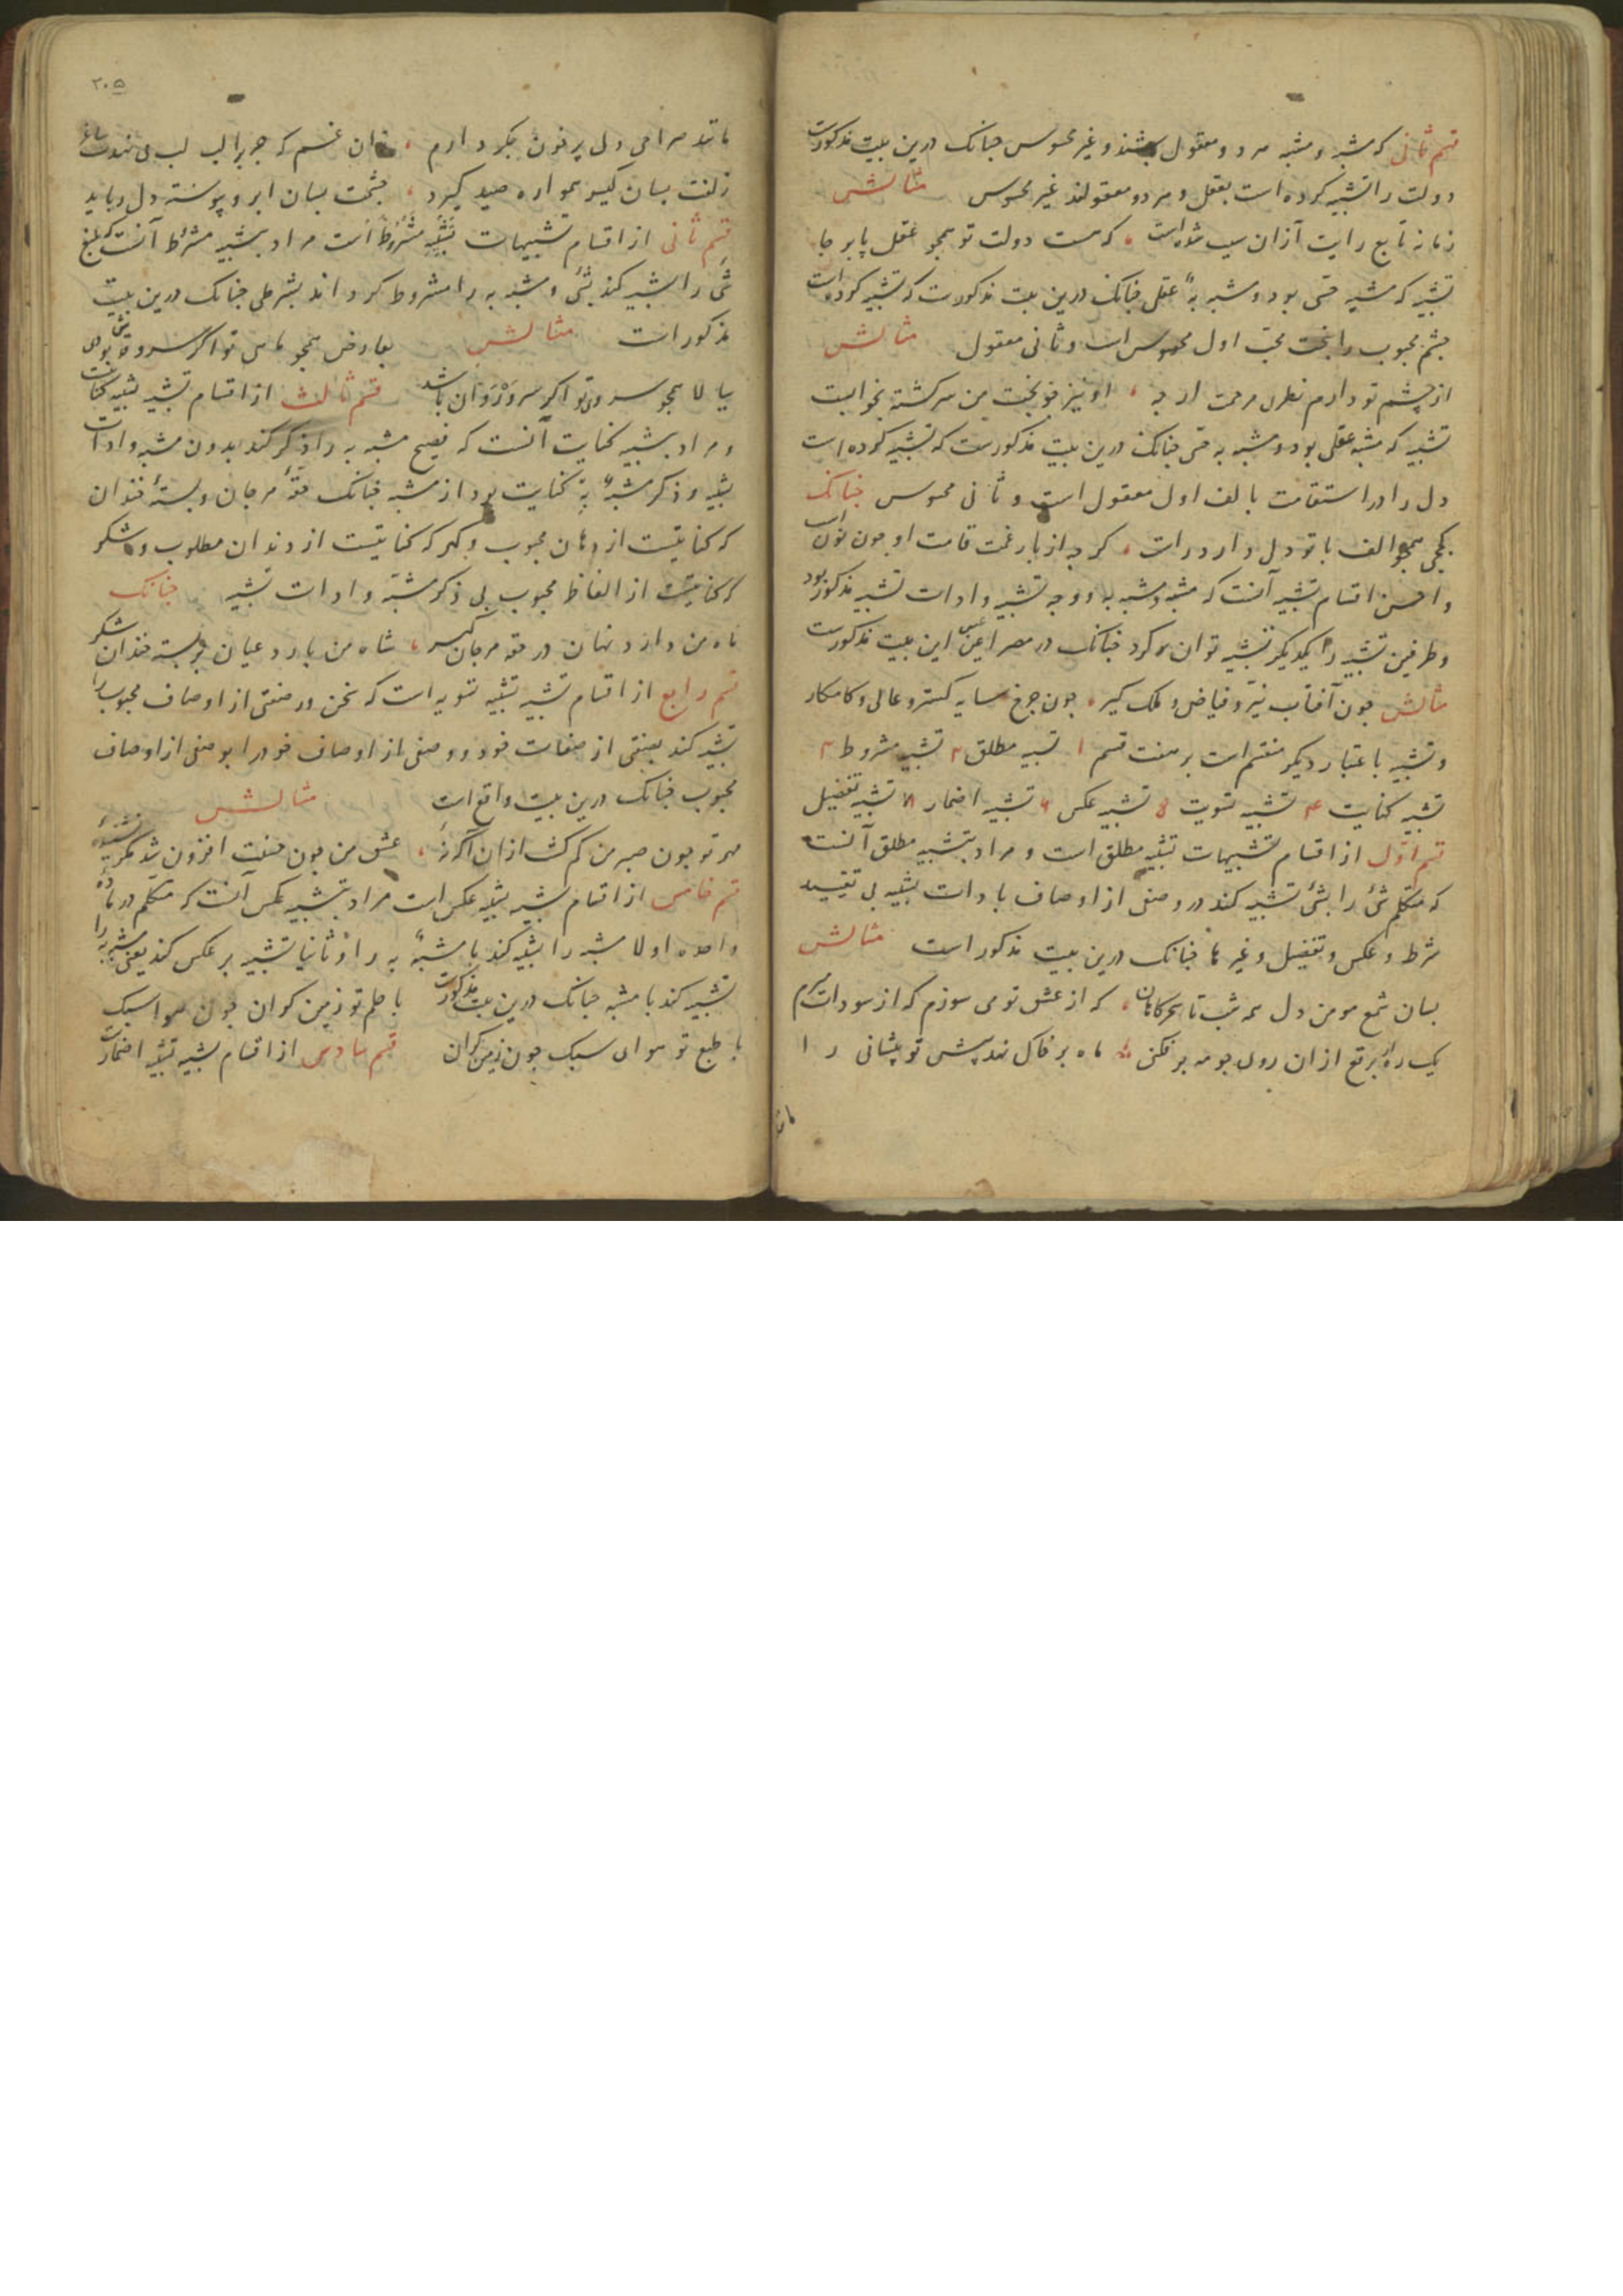 قسم ثانی که مشبه و مشبه هر دو معقول باشند و غیر محسوس چنانک درین بیت مذکورست
دولت را تشبیه کرده است بعقل و هر دو معقولند غیر محسوس مثالش
زمانه تابع رایت ازان سبب شده است که هست دولت تو همچو عقل پا بر جا
تشبیه که مشبه حسی بود و مشبه به عقلی چنانک درین بیت مذکورست که تشبیه کرده است
چشم محبوب را ببخت محب اول محسوس است و ثانی معقول مثالش
از چشم تو دارم نظر مرحمت ار چه او نیز چو بخت من سرگشته بخوابست
تشبیه که مشبه عقلی بود و مشبه به حسی چنانک درین بیت مذکورست که تشبیه کرده است
دل را در استقامت بالف اول معقول است و ثانی محسوس چنانک
همچو الف با تو دل دارد راست گر چه از بار غمت قامت او چون نون است
و احسن اقسام تشبیه آنست که مشبه و مشبه به و وجه تشبیه و ادات تشبیه مذکور بود
و طرفین تشبیه را بیکدیگر تشبیه توان کرد چنانک در مصراعین این بیت مذکورست
مثالش چون آفتاب نیر و فیاض و ملک گیر چون چرخ سایه گستر و عالی و کامکار
و تشبیه باعتبار دیگر منقسم است بر هفت قسم ۱ تشبیه مطلق ۲ تشبیه مشروط ۳
تشبیه کنایت ۴ تشبیه تسویت ۵ تشبیه عکس ۶ تشبیه اضمار ۷ تشبیه تفضیل
قسم اول از اقسام تشبیهات تشبیه مطلق است و مراد بتشبیه مطلق آنست
که متکلم شئ را بشئ تشبیه کند در وصفی از اوصاف بادات تشبیه بی تقیید
شرط و عکس و تفضیل و غیرها چنانک درین بیت مذکور است مثالش
بسان شمع مومن دل همه شب تا سحرگاهان که از عشق تو می سوزم که از سودات
یک ره ار برقع ازان روی چو مه بر فکنی ماه بر خاک نهد پیش تو پیشانی را
۲۰۵
مانند صراحی دل پر خون جگر دارم زان غم که چرا لب لب می نهدت ساغر
زلفت بسان گیسو همواره صید گیرد چشمت بسان ابرو پیوسته دل رباید
قسم ثانی از اقسام تشبیهات تشبیه مشروط است مراد بتشبیه مشروط آنست که بلیغ
شئ را تشبیه کند بشئ و مشبه به را مشروط گرداند بشرطی چنانک درین بیت
مذکور است مثالش بعارض همچو ماهی تو اگر سرو قبا پوشی
ببالا همچو سروی تو اگر سرو روان باشد قسم ثالث از اقسام تشبیه تشبیه کنایت
و مراد بتشبیه کنایت آنست که فصیح مشبه به را ذکر کند بدون مشبه و ادات
تشبیه و ذکر مشبه به کنایت بود از مشبه چنانک حقه مرجان و پسته خندان
که کنایتست از دهان محبوب و گهر که کنایتست از دندان مطلوب و شکر
که کنایتست از الفاظ محبوب بی ذکر مشبه و ادات تشبیه چنانک
ماه من دارد نهان در حقه مرجان گهر شاه من بارد عیان از پسته خندان شکر
قسم رابع از اقسام تشبیه تشبیه تسویه است که سخن ور صفتی از اوصاف محبوب را
تشبیه کند بصفتی از صفات خود و وصفی از اوصاف خود را بوصفی از اوصاف
محبوب چنانک درین بیت واقع است مثالش
مهر تو چون صبر من کم گشت ازان
عشق من چون حسنت افزون شد
قسم خامس از اقسام تشبیه تشبیه عکس است مراد بتشبیه عکس آنست که متکلم در ماده
واحده اولا مشبه را تشبیه کند با مشبه به و ثانیا تشبیه بر عکس کند یعنی مشبه به را
تشبیه کند با مشبه چنانک درین بیت مذکورست با حلم تو زمین گران چون هوا سبک
با طبع تو هوای سبک چون زمین گران قسم سادس از اقسام تشبیه تشبیه اضمارست